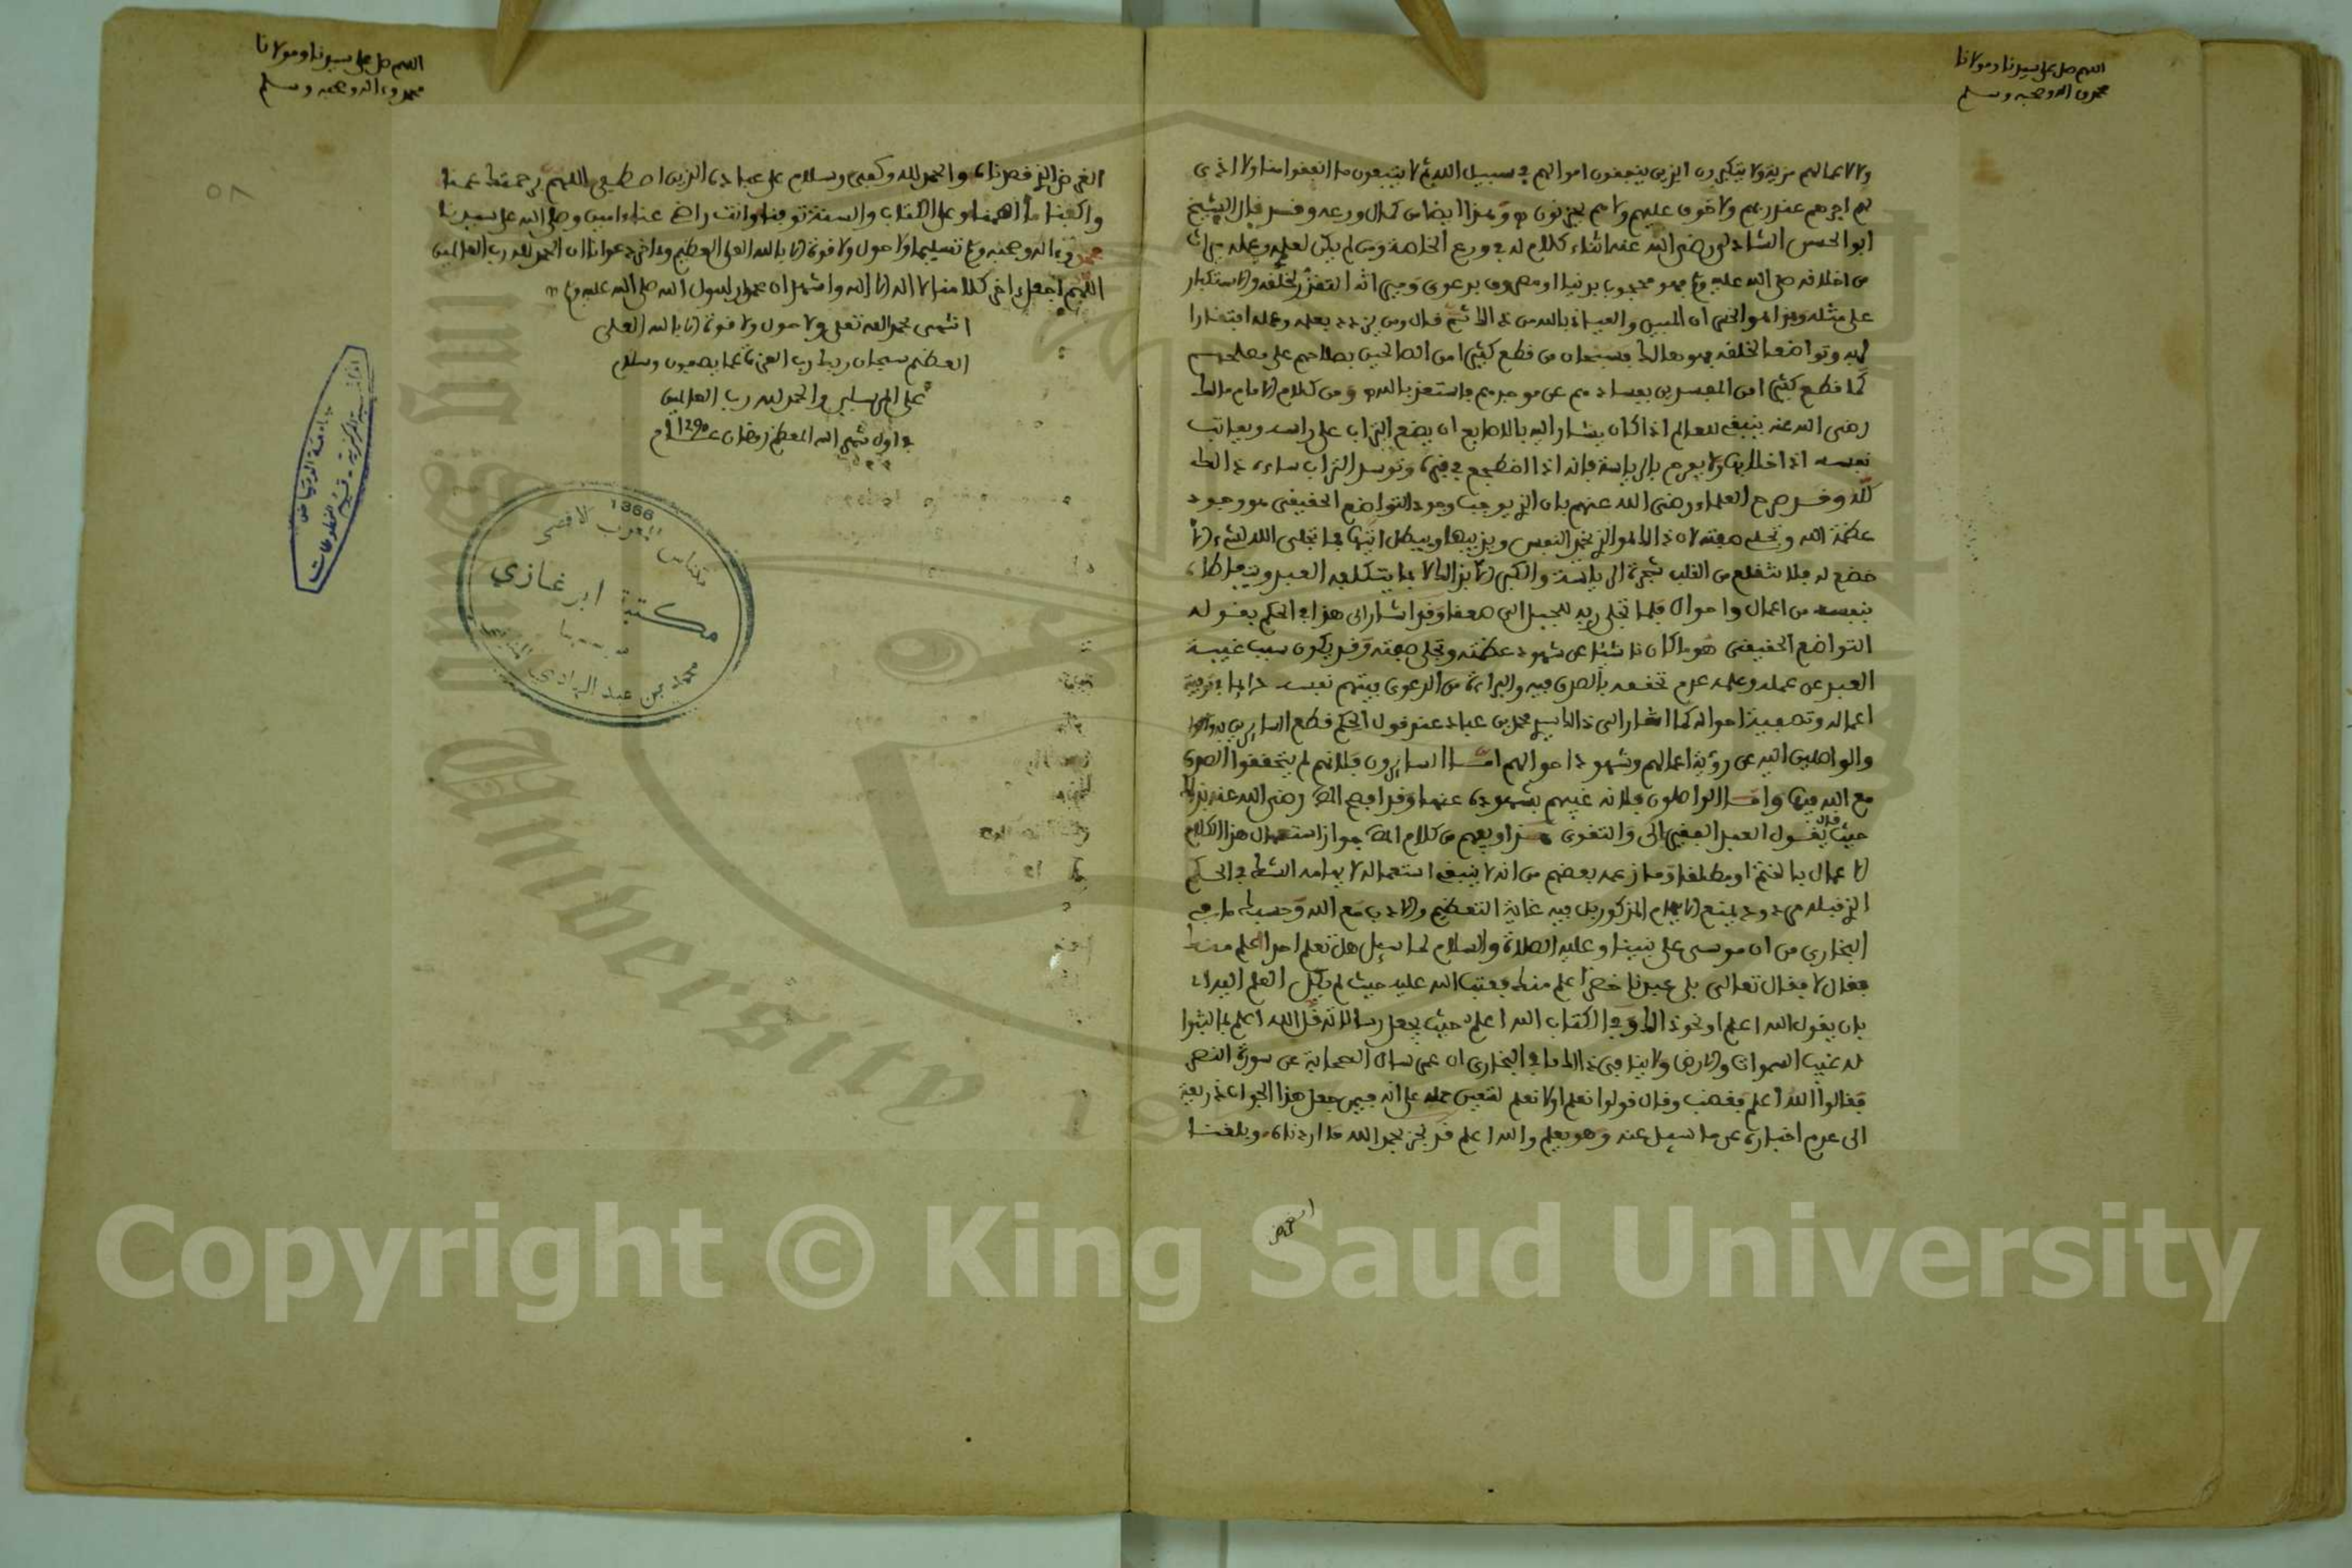 اللهم صل على سيدنا ومولانا
محمد وءاله وصحبه وسلم
ولا لاعمالهم مزية ولا يتكبرون الذين ينفقون اموالهم في سبيل الله ثم لا يتبعون ما انفقوا منا ولا اذى
لهم اجرهم عند ربهم ولا خوف عليهم ولا هم يحزنون وهذا ايضا من كمال ورعه وقد قال الشيخ
ابو الحسن الشاذلي رضي الله عنه اثناء كلام له في ورع الخاصة ومن لم يكن لعلمه وعمله ميراث
من اخلاقه صلى الله عليه وسلم فهو محجوب بدنيا او مصروف بدعوى وميراثه التعزز لخلقه والاستكبار
على مثله وهذا هو الخسران المبين والعياذ بالله من ذلك ثم قال ومن لم يزدد بعلمه وعمله افتقارا
لربه وتواضعا لخلقه فهو هالك فسبحان من قطع كثيرا من الصالحين بصلاحهم على مصلحهم
كما قطع كثيرا من المفسدين بفسادهم عن موجدهم فاستعذ بالله ومن كلام الامام مالك
رضي الله عنه ينبغي للعالم اذا كان يشار اليه بالاصابع ان يضع التراب على راسه ويعاتب
نفسه اذا خلا بها ولا يفرح بالرياسة فانه اذا اضطجع في قبره وتوسد التراب ساءه ذلك
كله وقد صرح العلماء رضي الله عنهم بان الذي يوجب وجود التواضع الحقيقي هو وجود
عظمة الله وتجلي صفته لان ذلك هو الذي يخمد النفس ويذيبها ويبطل انيتها فما تجلى الله لشيء الا
خضع له فلا تنقلع من القلب شجرة الرياسة والكبر الا بذلك لا بما يتكلفه العبد ويتعاطاه
بنفسه من اعمال واحوال فلما تجلى ربه للجبل الى صعقا وقد اشار الى هذا في الحكم بقوله
التواضع الحقيقي هو ما كان ناشئا عن شهود عظمته وتجلي صفته وقد يكون سبب غيبة
العبد عن عمله وعلمه عدم تحققه بالصدق فيه والبراءة من الدعوى فيتهم نفسه
اعماله وتصفية احواله كما اشار الى ذلك سيدي محمد بن عباد عند قول الحكم قطع السايرين
والواصلين اليه عن رؤية اعمالهم وشهود احوالهم اما السايرون فلانهم لم يتحققوا الصدق
مع الله فيها واما الواصلون فلانه غيبهم بشهوده عنها وقد افصح رضي الله عنه بذلك
حيث قال يقول العبد الفقير الى والتقوى هذا ويفهم من كلام جواز استعمال هذا الكلام
لا عمال بالختم او مطلقا وما زعمه بعضهم من انه لا ينبغي استعماله لايهامه الشك في الحكم
الذي قبله مردود يمنع الايهام المذكور بل فيه غاية التعظيم والادب مع الله وحسبك ما في
البخاري من ان موسى على نبينا وعليه الصلاة والسلام لما سيل هل تعلم احدا اعلم منك
فقال لا فقال تعالى بلى عبدنا خضر اعلم منك فعتب الله عليه حيث لم يكل العلم اليه
بان يقول الله اعلم او نحو ذلك وفي الكتاب الله اعلم حيث يجعل رسالاته قل الله اعلم بما لبثوا
له غيب السموات والارض ولا ينافي ذلك ما في البخاري ان عمر سال الصحابة عن سورة النصر
فقالوا الله اعلم فغضب وقال قولوا نعلم او لا نعلم لتعين حمله على انه فيمن جعل هذا الجواب ذريعة
الى عدم اخباره عن ما سيل عنه وهو يعلم والله اعلم قد نجز بحمد الله ما اردناه وبلغنا
الغرض
اللهم صل على سيدنا ومولانا
محمد وءاله وصحبه وسلم
٥٨
الغرض الذي قصدناه والحمد لله وكفى وسلام على عباده الذين اصطفى اللهم برحمتك عمنا
واكفنا ما اهمنا وعلى الكتاب والسنة توفنا وانت راض عنا ءامين وصلى الله على سيدنا
محمد وءاله وصحبه وسلم تسليما ولا حول ولا قوة الا بالله العلي العظيم وءاخر دعوانا ان الحمد لله رب العالمين
اللهم اجعل ءاخر كلامنا لا اله الا الله واشهد ان محمدا رسول الله صلى الله عليه وسلم
انتهى بحمد الله تعلى ولا حول ولا قوة الا بالله العلي
العظيم سبحان ربك رب العزة عما يصفون وسلام
على المرسلين والحمد لله رب العالمين
في اول شهر الله المعظم رمضان عام 1290
1366
المغرب الاقصى
مكناس
مكتبة ابن غازي
محمد بن عبد الهادي
جامعة الرياض
المكتبة المركزية - قسم المخطوطات
King Saud University
19
Copyright © King Saud University